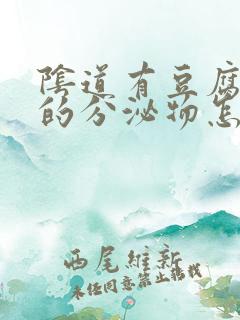 陰道有豆腐
的分泌物怎
西尾維新
未经同意禁止转载